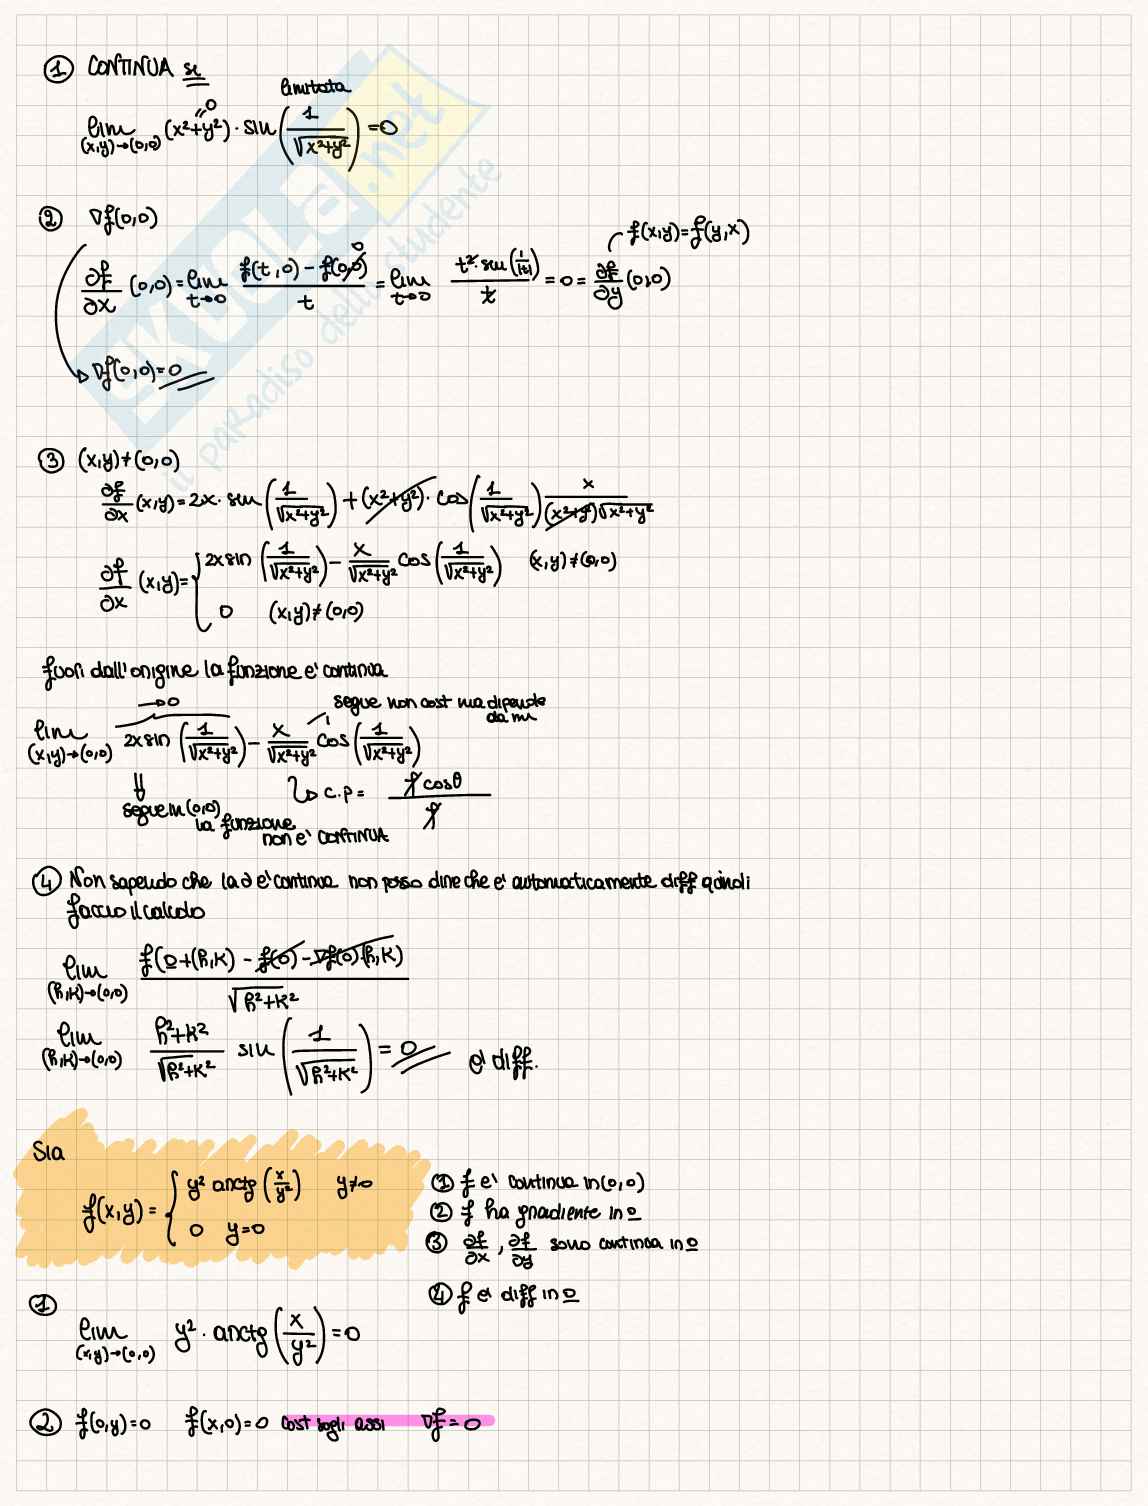 ① CONTINUA se
limitata
lim (x,y)→(0,0) (x²+y²) · sin(1/√x²+y²) = 0
→0
② ∇f(0,0)
f(x,y)=f(y,x)
∂f/∂x (0,0) = lim t→0 f(t,0) - f(0,0)/t = lim t→0 t² · sin(1/|t|)/t = 0 = ∂f/∂y (0,0)
0
∇f(0,0)=0
③ (x,y)≠(0,0)
∂f/∂x (x,y) = 2x · sin(1/√x²+y²) + (x²+y²) · cos(1/√x²+y²) x/(x²+y²)√x²+y²
∂f/∂x (x,y) = { 2xsin(1/√x²+y²) - x/√x²+y² cos(1/√x²+y²) (x,y)≠(0,0)
0 (x,y)≠(0,0)
fuori dall'origine la funzione e' continua
→0
segue non cost ma dipende da m
lim (x,y)→(0,0) 2xsin(1/√x²+y²) - x/√x²+y² cos(1/√x²+y²)
⇓ c.p = ρcosθ/ρ
segue in (0,0)
la funzione
non e' CONTINUA
④ Non sapendo che la ∂ e' continua non posso dire che e' automaticamente diff quindi
faccio il calcolo
lim (h,k)→(0,0) f(0+(h,k) - f(0) - ∇f(0)(h,k)/√h²+k²
lim (h,k)→(0,0) h²+k²/√h²+k² sin(1/√h²+k²) = 0 e' diff.
Sia
f(x,y) = { y² arctg(x/y²) y≠0
0 y=0
① f e' continua in (0,0)
② f ha gradiente in 0
③ ∂f/∂x , ∂f/∂y sono continua in 0
④ f e' diff in 0
①
lim (x,y)→(0,0) y² · arctg(x/y²) = 0
② f(0,y)=0 f(x,0)=0 cost sugli assi ∇f=0
SKUOLA.net
il paradiso dello studente